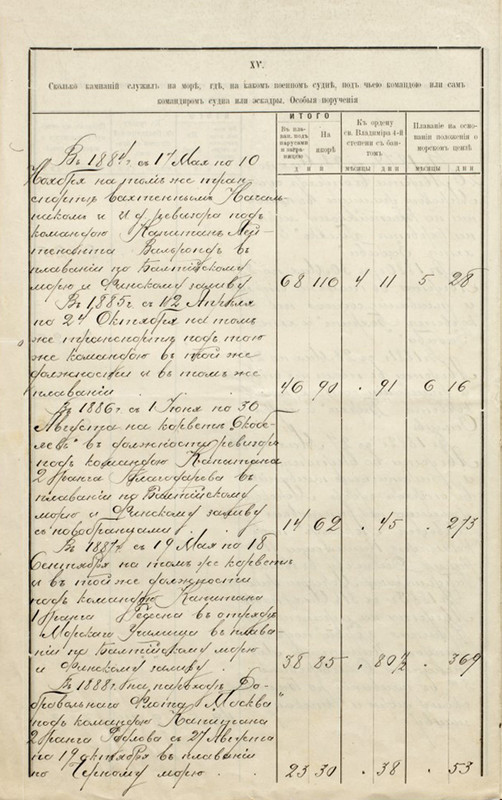 XV.
Сколько кампаній служилъ на морѣ, гдѣ, на какомъ военномъ суднѣ, подъ чьею командою или самъ
командиромъ судна или эскадры. Особыя порученія
ИТОГО
Въ плаван. подъ парусами и заграницею
На якорѣ
Къ ордену св. Владиміра 4-й степени съ бантомъ
Плаваніе на основаніи положенія о морскомъ цензѣ
дни
мѣсяцы дни
мѣсяцы дни
Въ 1884г. съ 17 Мая по 10
Ноября на томъ же тран-
спортѣ вахтеннымъ Началь-
никомъ и И.д. ревизора подъ
командою Капитанъ Лей-
тенанта Вальронда въ
плаваніи по Балтійскому
морю и Финскому заливу 68 110 4 11 5 28
Въ 1885г. съ 12 Апрѣля
по 24 Октября на томъ
же транспортѣ подъ тою
же командою въ той же
должности и въ томъ же
плаваніи . 46 90 . 91 6 16
Въ 1886г. съ 1 Іюня по 30
Августа на корветѣ „Скобе-
левъ" въ должности ревизора
подъ командою Капитана
2 ранга Благодарева въ
плаваніи по Балтійскому
морю и Финскому заливу
съ новобранцами . . 14 62 . 45 . 273
Въ 1887г. съ 19 Мая по 18
Сентября на томъ же корветѣ
и въ той же должности
подъ командою Капитана
1 ранга въ отрядѣ
Морскаго Училища въ плава-
ніи по Балтійскому морю
и Финскому заливу . 38 85 . 80½ . 369
Въ 1888г. на пароходѣ До-
бровольнаго Флота „Москва"
подъ командою Капитана
2 ранга съ 27 Августа
по 19 Октября въ плаваніи
по Черному морю . . 23 30 . 38 . 53